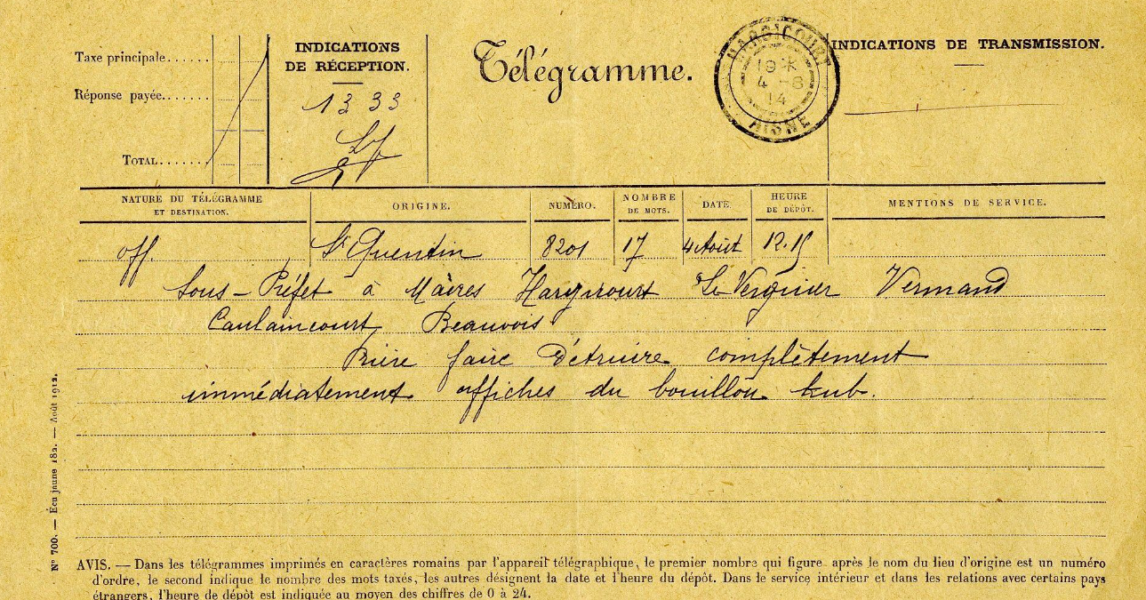 Taxe principale......
Réponse payée.......
TOTAL.......
INDICATIONS
DE RÉCEPTION.
13 33
Télégramme.
HARGICOURT
19 *
4 -8
14
AISNE
INDICATIONS DE TRANSMISSION.
NATURE DU TÉLÉGRAMME
ET DESTINATION.
ORIGINE.
NUMÉRO.
NOMBRE
DE MOTS.
DATE.
HEURE
DE DÉPÔT.
MENTIONS DE SERVICE.
off. St Quentin 8201 17 4 Août 12.15
Sous-Préfet à Maires Hargicourt Le Verguier Vermand
Caulaincourt Beauvois
Prière faire détruire complètement
immédiatement affiches du bouillon kub.
N° 700. — Écu jaune 182. — Août 1912.
AVIS. — Dans les télégrammes imprimés en caractères romains par l'appareil télégraphique, le premier nombre qui figure après le nom du lieu d'origine est un numéro
d'ordre, le second indique le nombre des mots taxés, les autres désignent la date et l'heure du dépôt. Dans le service intérieur et dans les relations avec certains pays
étrangers, l'heure de dépôt est indiquée au moyen des chiffres de 0 à 24.